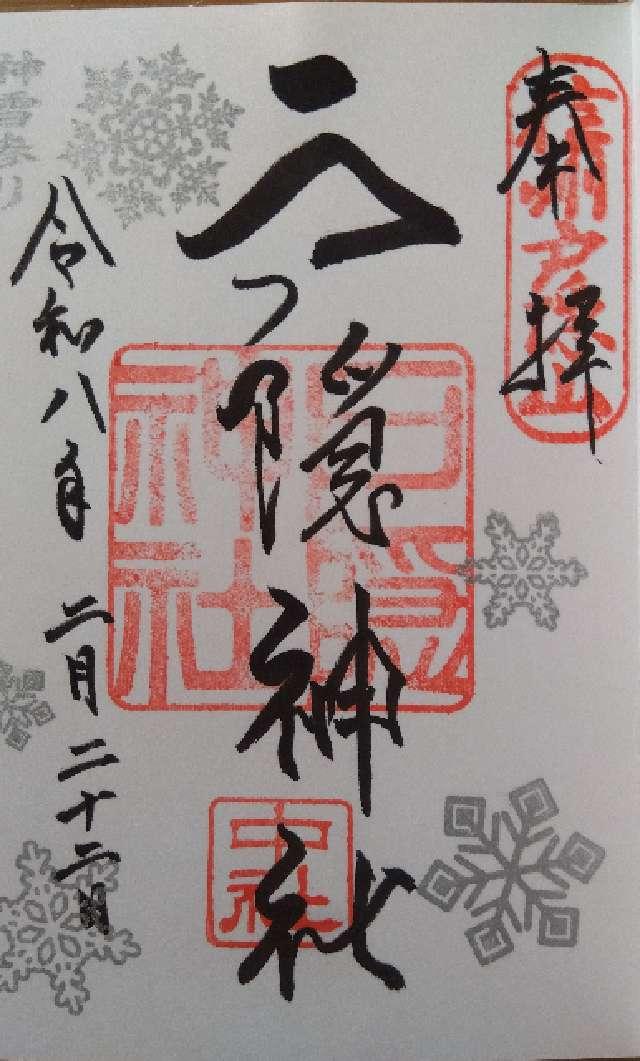 奉拝
信州戸隠山
戸隠神社
戸隠神社
中社
令和八年 二月二十二日
雪参り